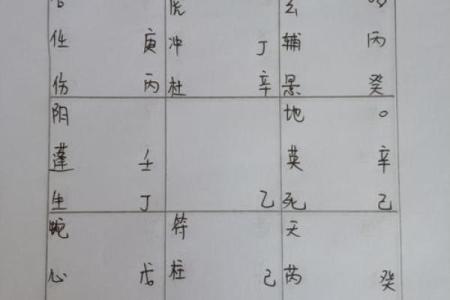 虎 玄
任 庚 冲 丁 辅 丙
伤 丙 杜 辛 景 癸
阴 地 ○
蓬 壬 英 辛
生 丁 乙 死 己
蛇 符 天
心 戊 柱 己 芮 癸